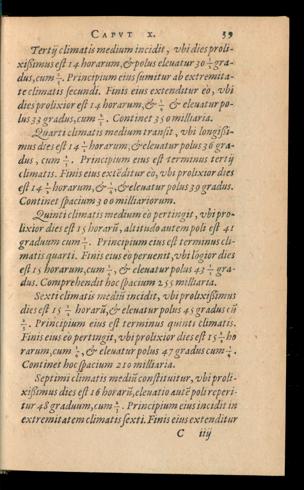 CAPVT X. 39
Tertij climatis medium incidit, vbi dies proli-
xißimus est 14 horarum, & polus eleuatur 30 gra-
dus, cum. Principium eius sumitur ab extremita-
te climatis secundi. Finis eius extenditur eò, vbi
dies prolixior est 14 horarum, & & eleuatur po-
lus 33 graduum, cum. Continet 350 milliaria.
Quarti climatis medium transit, vbi longißi-
mus dies est 14 horarum, & eleuatur polus 36 gra-
dus, cum. Principium eius est terminus tertij
climatis. Finis eius extẽditur eò, vbi prolixior dies
est 14 horarum, &, & eleuatur polus 39 gradus.
Continet spacium 300 milliariorum.
Quinti climatis medium eò pertingit, vbi pro-
lixior dies est 15 horarũ, altitudo autem poli est 41
graduum cum. Principium eius est terminus cli-
matis quarti. Finis eius eò peruenit, vbi lõgior dies
est 15 horarum, cum, & eleuatur polus 43 gra-
dus. Comprehendit hoc spacium 255 milliaria.
Sexti climatis mediũ incidit, vbi prolixißimus
dies est 15 horarũ, & eleuatur polus 45 gradus cũ
. Principium eius est terminus quinti climatis.
Finis eius eò pertingit, vbi prolixior dies est 15 ho
rarum, cum, & eleuatur polus 47 gradus cum,
Continet hoc spacium 210 milliaria.
Septimi climatis mediũ constituitur, vbi proli-
xißimus dies est 16 horarũ, eleuatio autẽ poli reperi-
tur 48 graduum, cum. Principium eius incidit in
extremitatem climatis sexti. Finis eius extenditur
C iij